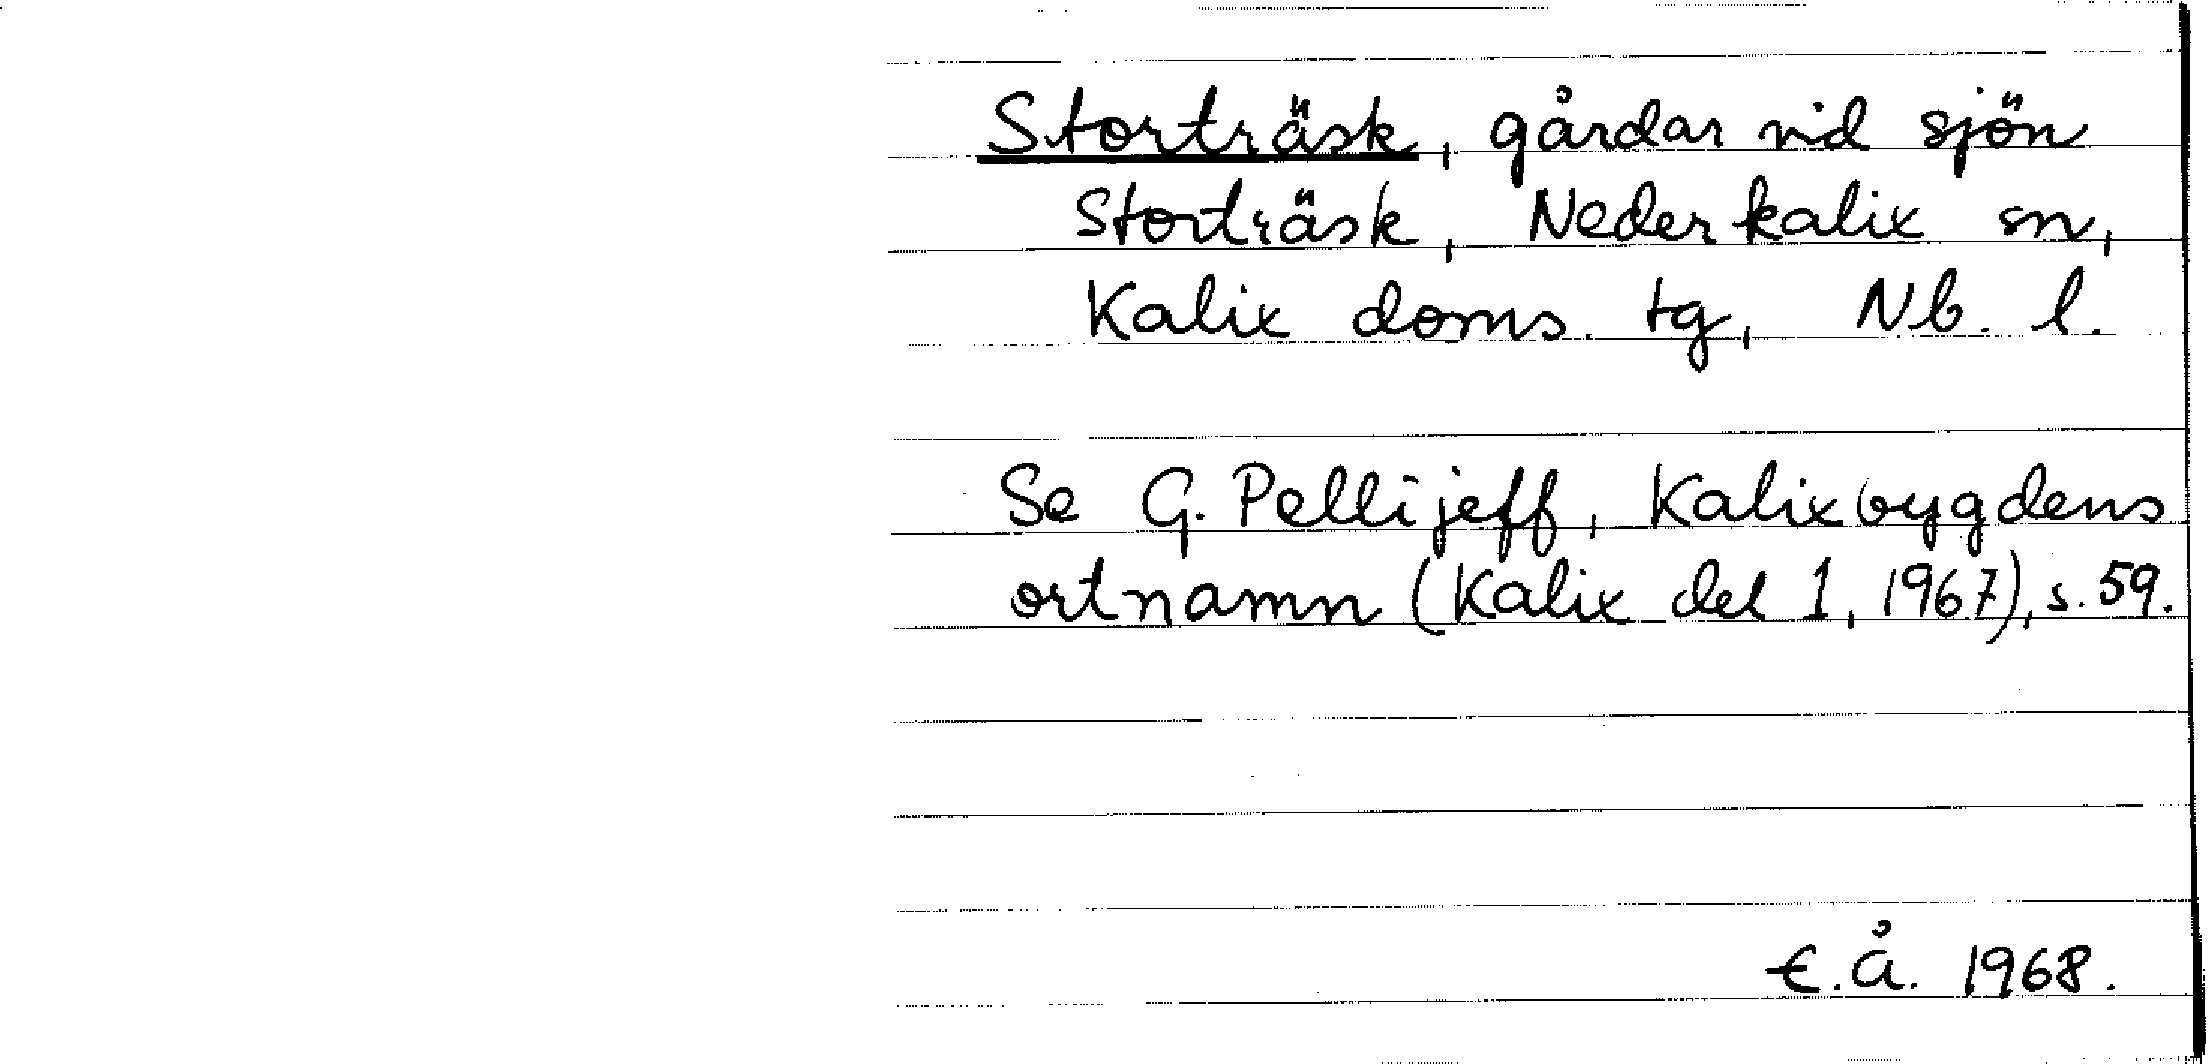 Storträsk, gårdar vid sjön
Storträsk, Nederkalix sn,
Kalix doms. tg, Nb. l.
Se G. Pellijeff, Kalixbygdens
ortnamn (Kalix del 1, 1967), s. 59.
E.Å. 1968.